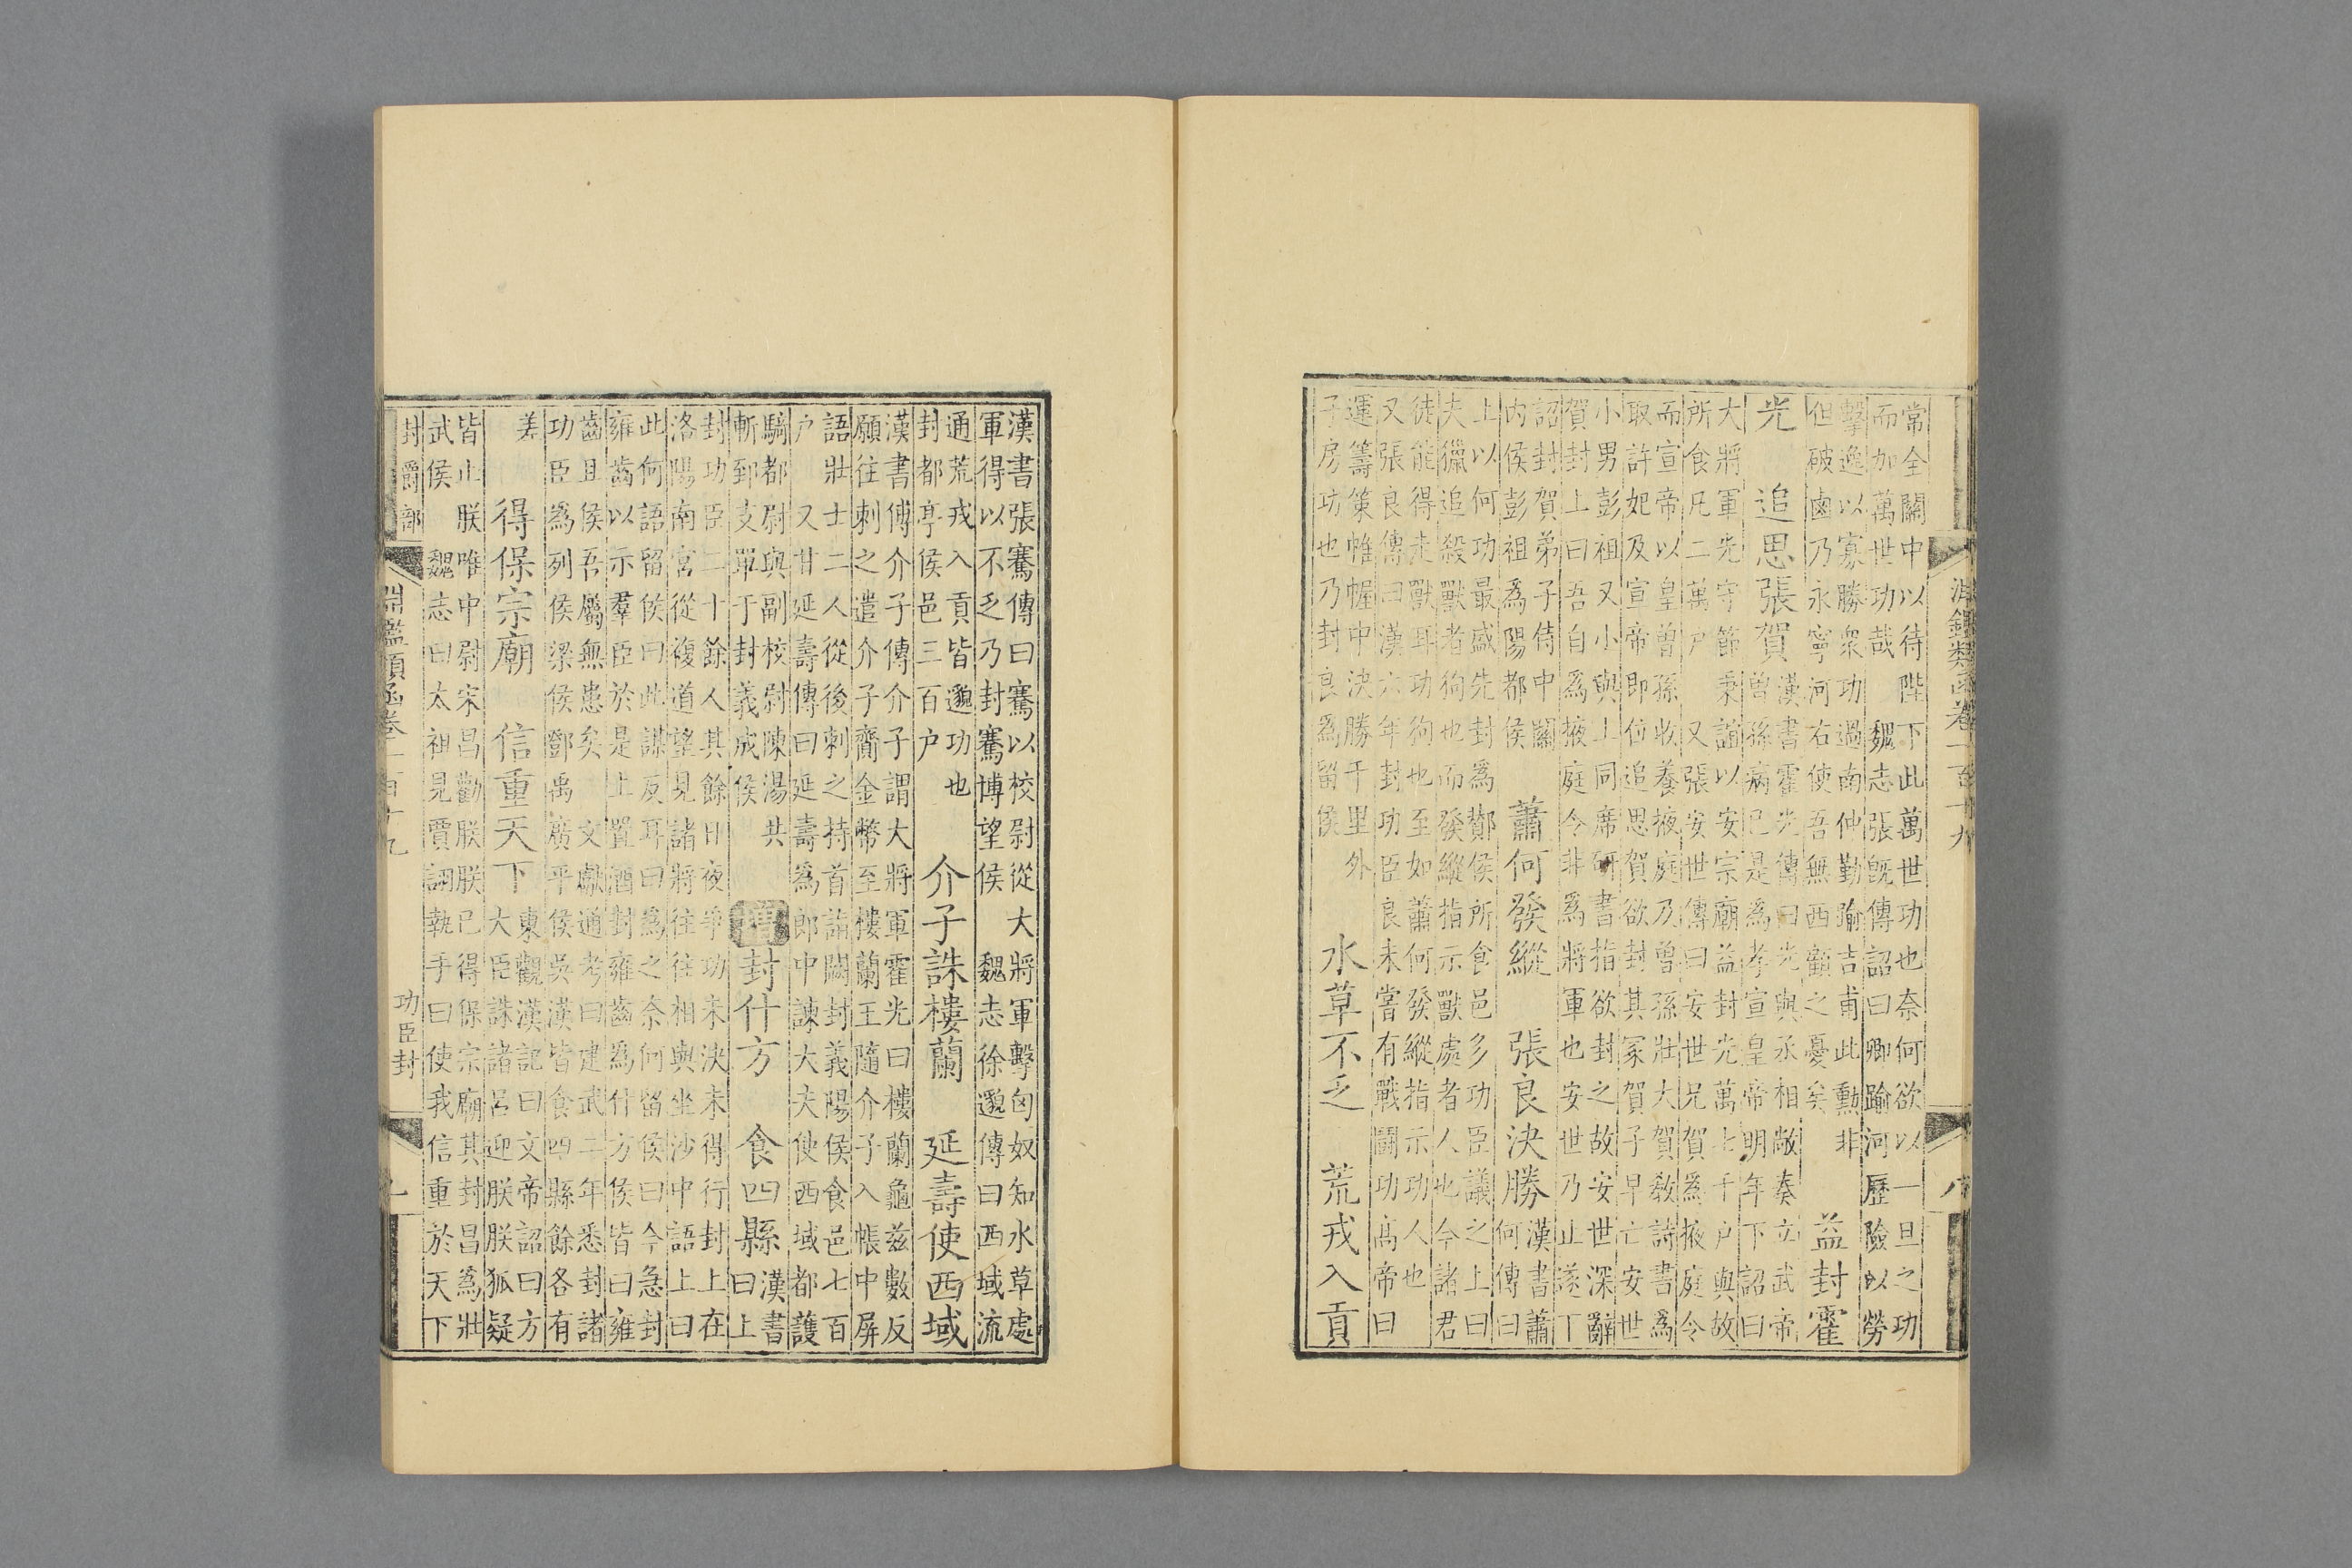 淵鑑類函卷一百十九
八
常全關中以待陛下此萬世功也奈何欲以一旦之功
而加萬世功哉 魏志張旣傳詔曰卿踰河歷險以勞
擊逸以寡勝衆功過南仲勤踰吉甫此勳非
但破鹵乃永寧河右使吾無西顧之憂矣
益封霍
光 追思張賀
漢書霍光傳曰光與丞相敞奏立武帝
曾孫病已是爲孝宣皇帝明年下詔曰
大將軍光守節秉誼以安宗廟益封光萬七千戶與故
所食凡二萬戶 又張安世傳曰安世兄賀爲掖庭令
而宣帝以皇曾孫收養掖庭乃曾孫壯大賀敎詩書爲
取許妃及宣帝即位追思賀欲封其冢賀子早亡安世
小男彭祖又小與上同席研書指欲封之故安世深辭
賀封上曰吾自爲掖庭令非爲將軍也安世乃止遂下
詔封賀弟子侍中關
內侯彭祖爲陽都侯
蕭何發縱 張良決勝
漢書蕭
何傳曰
上以何功最盛先封爲鄼侯所食邑多功臣議之上曰
夫獵追殺獸者狗也而發縱指示獸處者人也今諸君
徒能得走獸耳功狗也至如蕭何發縱指示功人也
又張良傳曰漢六年封功臣良未嘗有戰鬭功高帝曰
運籌策帷幄中決勝千里外
子房功也乃封良爲留侯
水草不乏 荒戎入貢
漢書張騫傳曰騫以校尉從大將軍擊匈奴知水草處
軍得以不乏乃封騫博望侯 魏志徐邈傳曰西域流
通荒戎入貢皆邈功也
封都亭侯邑三百户
介子誅樓蘭 延壽使西域
漢書傅介子傳介子謂大將軍霍光曰樓蘭龜兹數反
願往刺之遣介子齎金幣至樓蘭王隨介子入帳中屏
語壯士二人從後刺之持首詣闕封義陽侯食邑七百
户 又甘延壽傳曰延壽爲郎中諫大夫使西域都護
騎都尉與副校尉陳湯共
斬郅支單于封義成侯
增封什方 食四縣
漢書
曰上
封功臣二十餘人其餘日夜爭功未決未得行封上在
洛陽南宮從複道望見諸將往往相與坐沙中語上曰
此何語留侯曰此謀反耳曰爲之奈何留侯曰今急封
雍齒以示羣臣於是上置酒封雍齒爲什方侯皆曰雍
齒且侯吾屬無患矣 文獻通考曰建武二年悉封諸
功臣爲列侯梁侯鄧禹廣平侯吳漢皆食四縣餘各有
差
得保宗廟 信重天下
東觀漢記曰文帝詔曰方
大臣誅諸呂迎朕朕狐疑
皆止朕唯中尉宋昌勸朕朕已得保宗廟其封昌爲壯
武侯 魏志曰太祖見賈詡執手曰使我信重於天下
封爵部
淵鑑類函卷一百十九
功臣封